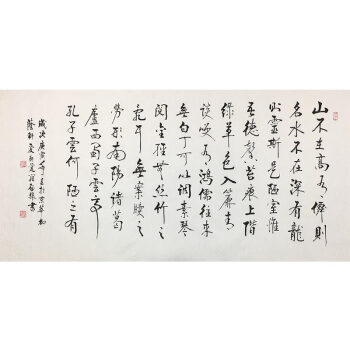 山不在高有僊則
名水不在深有龍
則靈斯是陋室惟
吾德馨苔痕上階
綠草色入簾青
談笑有鴻儒往來
無白丁可以調素琴
閱金經無絲竹之
亂耳無案牘之
勞形南陽諸葛
廬西蜀子雲亭
孔子雲何陋之有
歲次庚寅
愛新覺羅 書